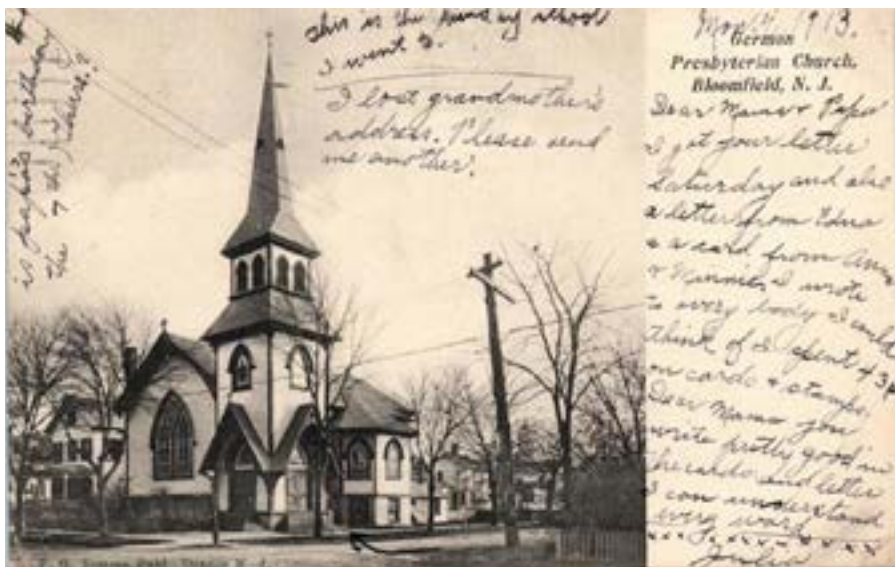 This is the Sunday school
I went to.
I lost grandmother's
address. Please send
me another.
is papa's birthday
the 7th of
1913.
German
Presbyterian Church,
Bloomfield, N. J.
Dear Mama & Papa
I got your letter
Saturday and also
a letter from Edna
a card from
& I wrote
to every body I could
think of I spent
on cards & stamps.
Dear Mama you
write pretty good in
the cards and letter
I can understand
every word